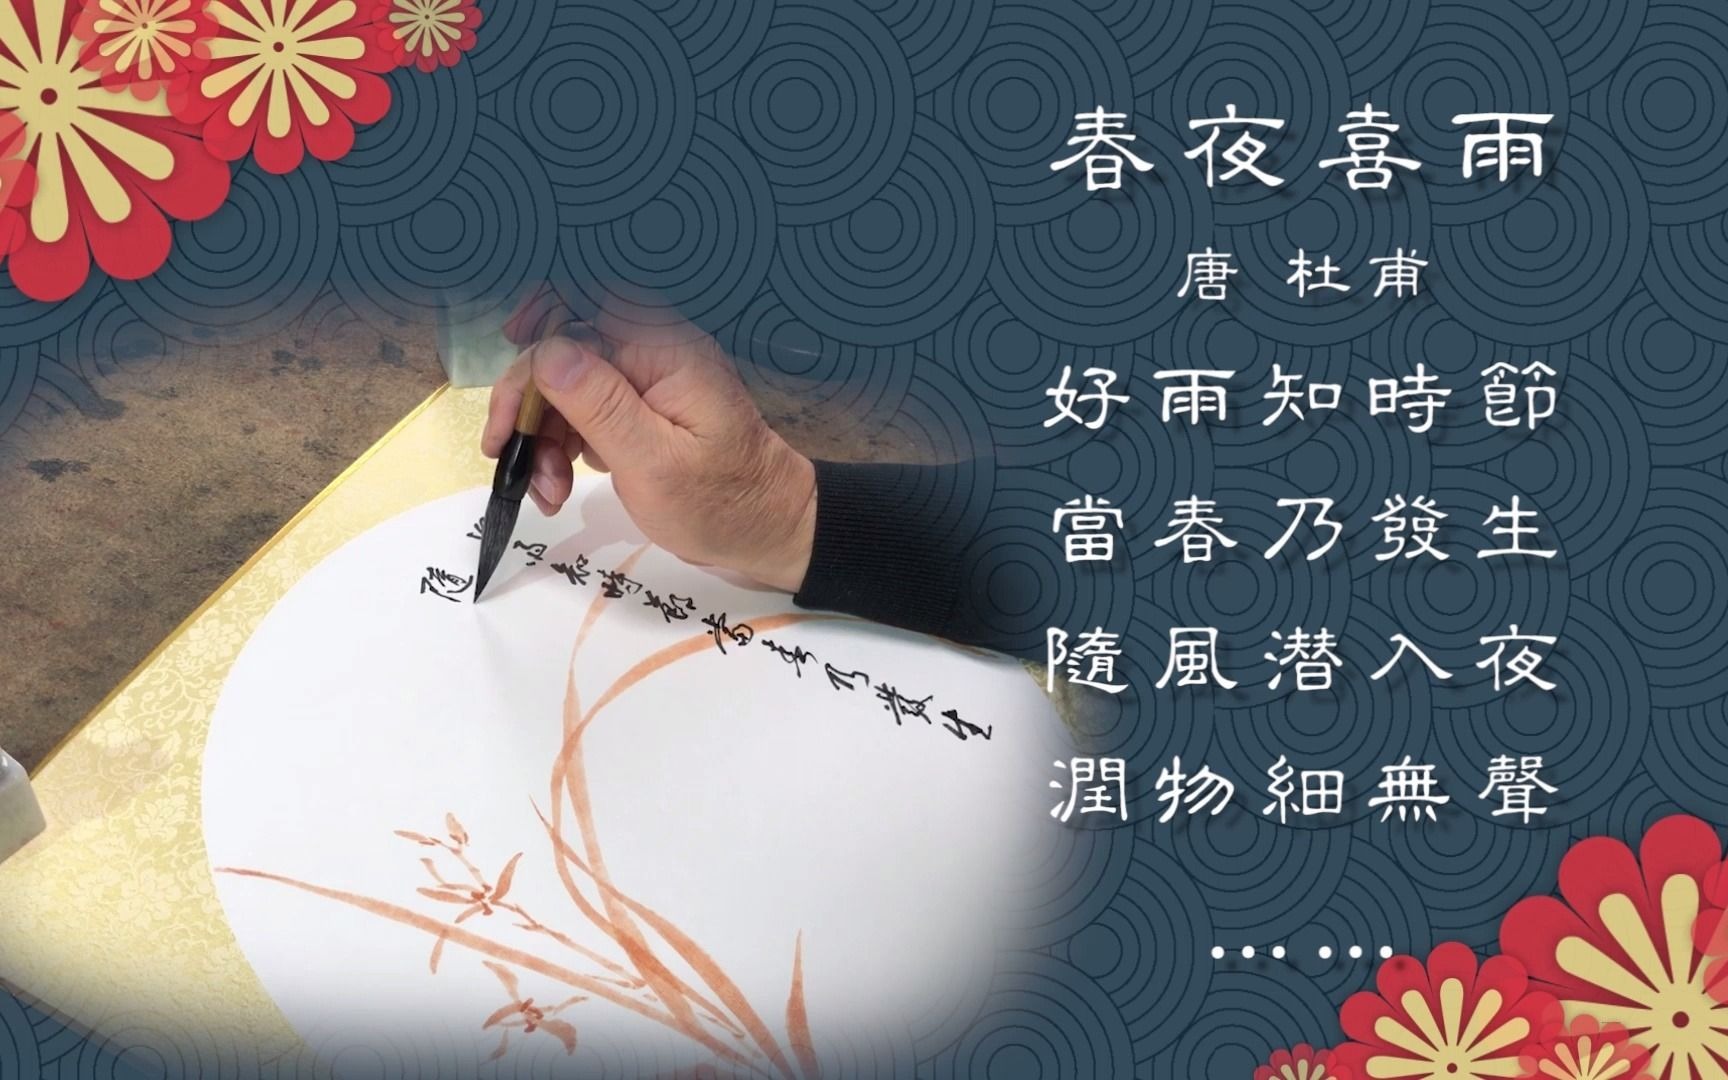 春夜喜雨
唐 杜甫
好雨知時節
當春乃發生
隨風潛入夜
潤物細無聲
……
雨知時節當春乃發生
隨